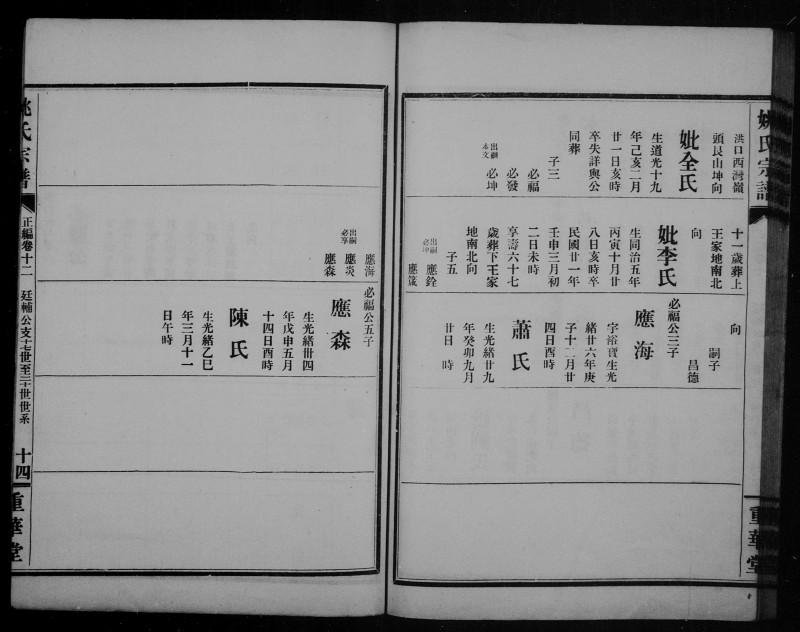 姚氏宗譜
重華堂
洪口西灣嶺
頭艮山坤向
妣全氏
生道光十九
年己亥二月
廿一日亥時
卒失詳與公
同葬
子三
必福
必發
必坤
出嗣
永文
十一歲葬上
王家地南北
向
妣李氏
生同治五年
丙寅十月廿
八日亥時卒
民國廿一年
壬申三月初
二日未時
享壽六十七
歲葬下王家
地南北向
子五
應銓
出嗣
必坤
應箴
向
嗣子
昌德
必福公三子
應海
字裕寶生光
緒廿六年庚
子十二月廿
四日酉時
蕭氏
生光緒廿九
年癸卯九月
廿日 時
應海
應炎
出嗣
必享
應森
必福公五子
應森
生光緒卅四
年戊申五月
十四日酉時
陳氏
生光緒乙巳
年三月十一
日午時
姚氏宗譜
正編卷十二
廷輔公支十七世至二十世世系
十四
重華堂